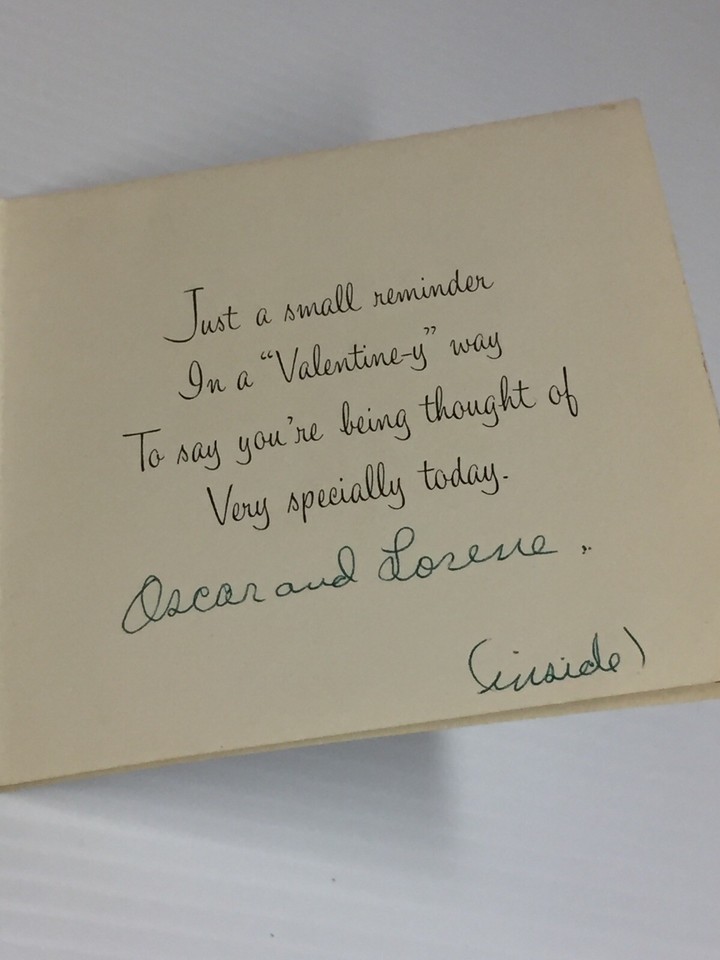 Just a small reminder
In a “Valentine-y” way
To say you're being thought of
Very specially today.
Oscar and Lorene..
(inside)